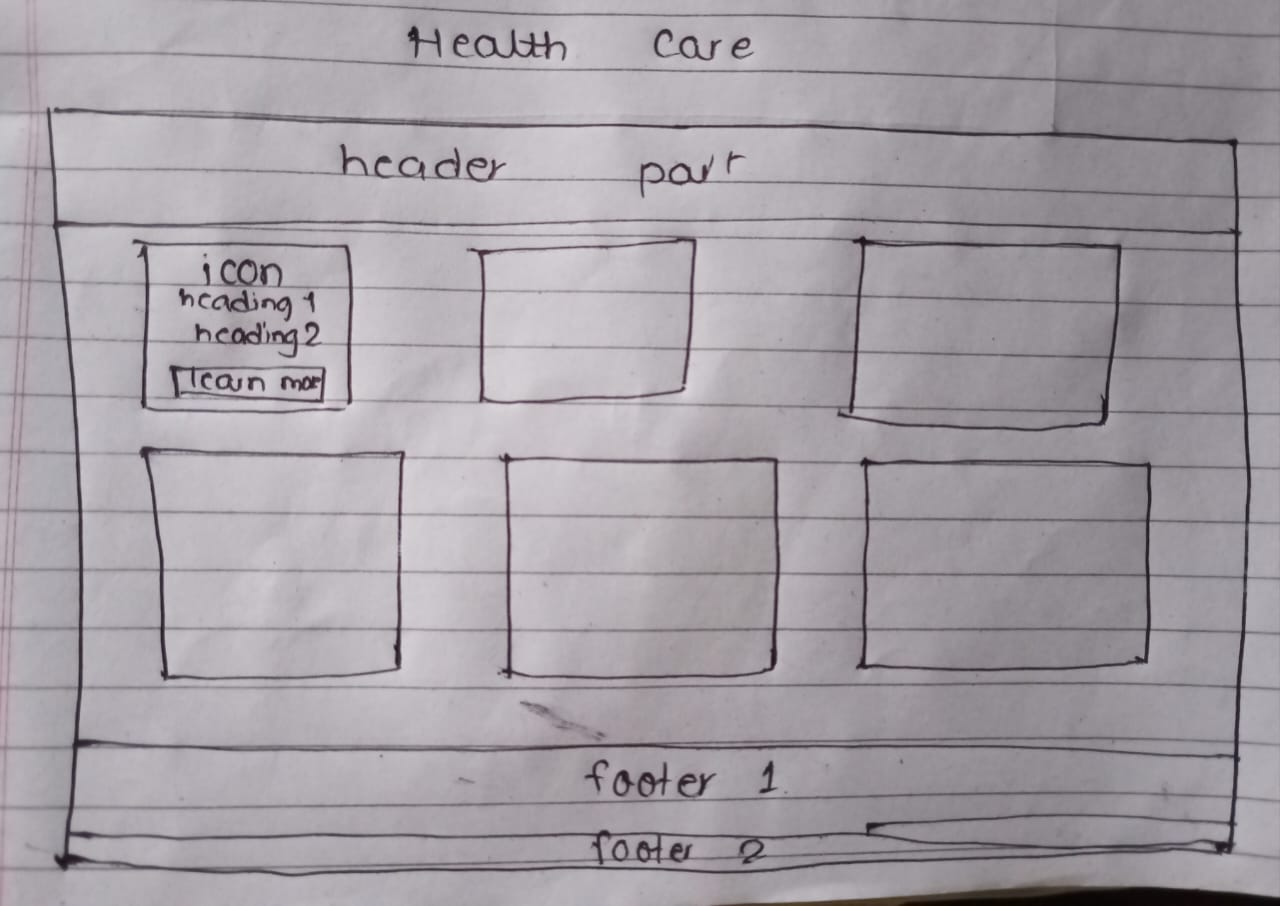 Health Care
header part
icon
heading 1
heading 2
learn mor
footer 1
footer 2